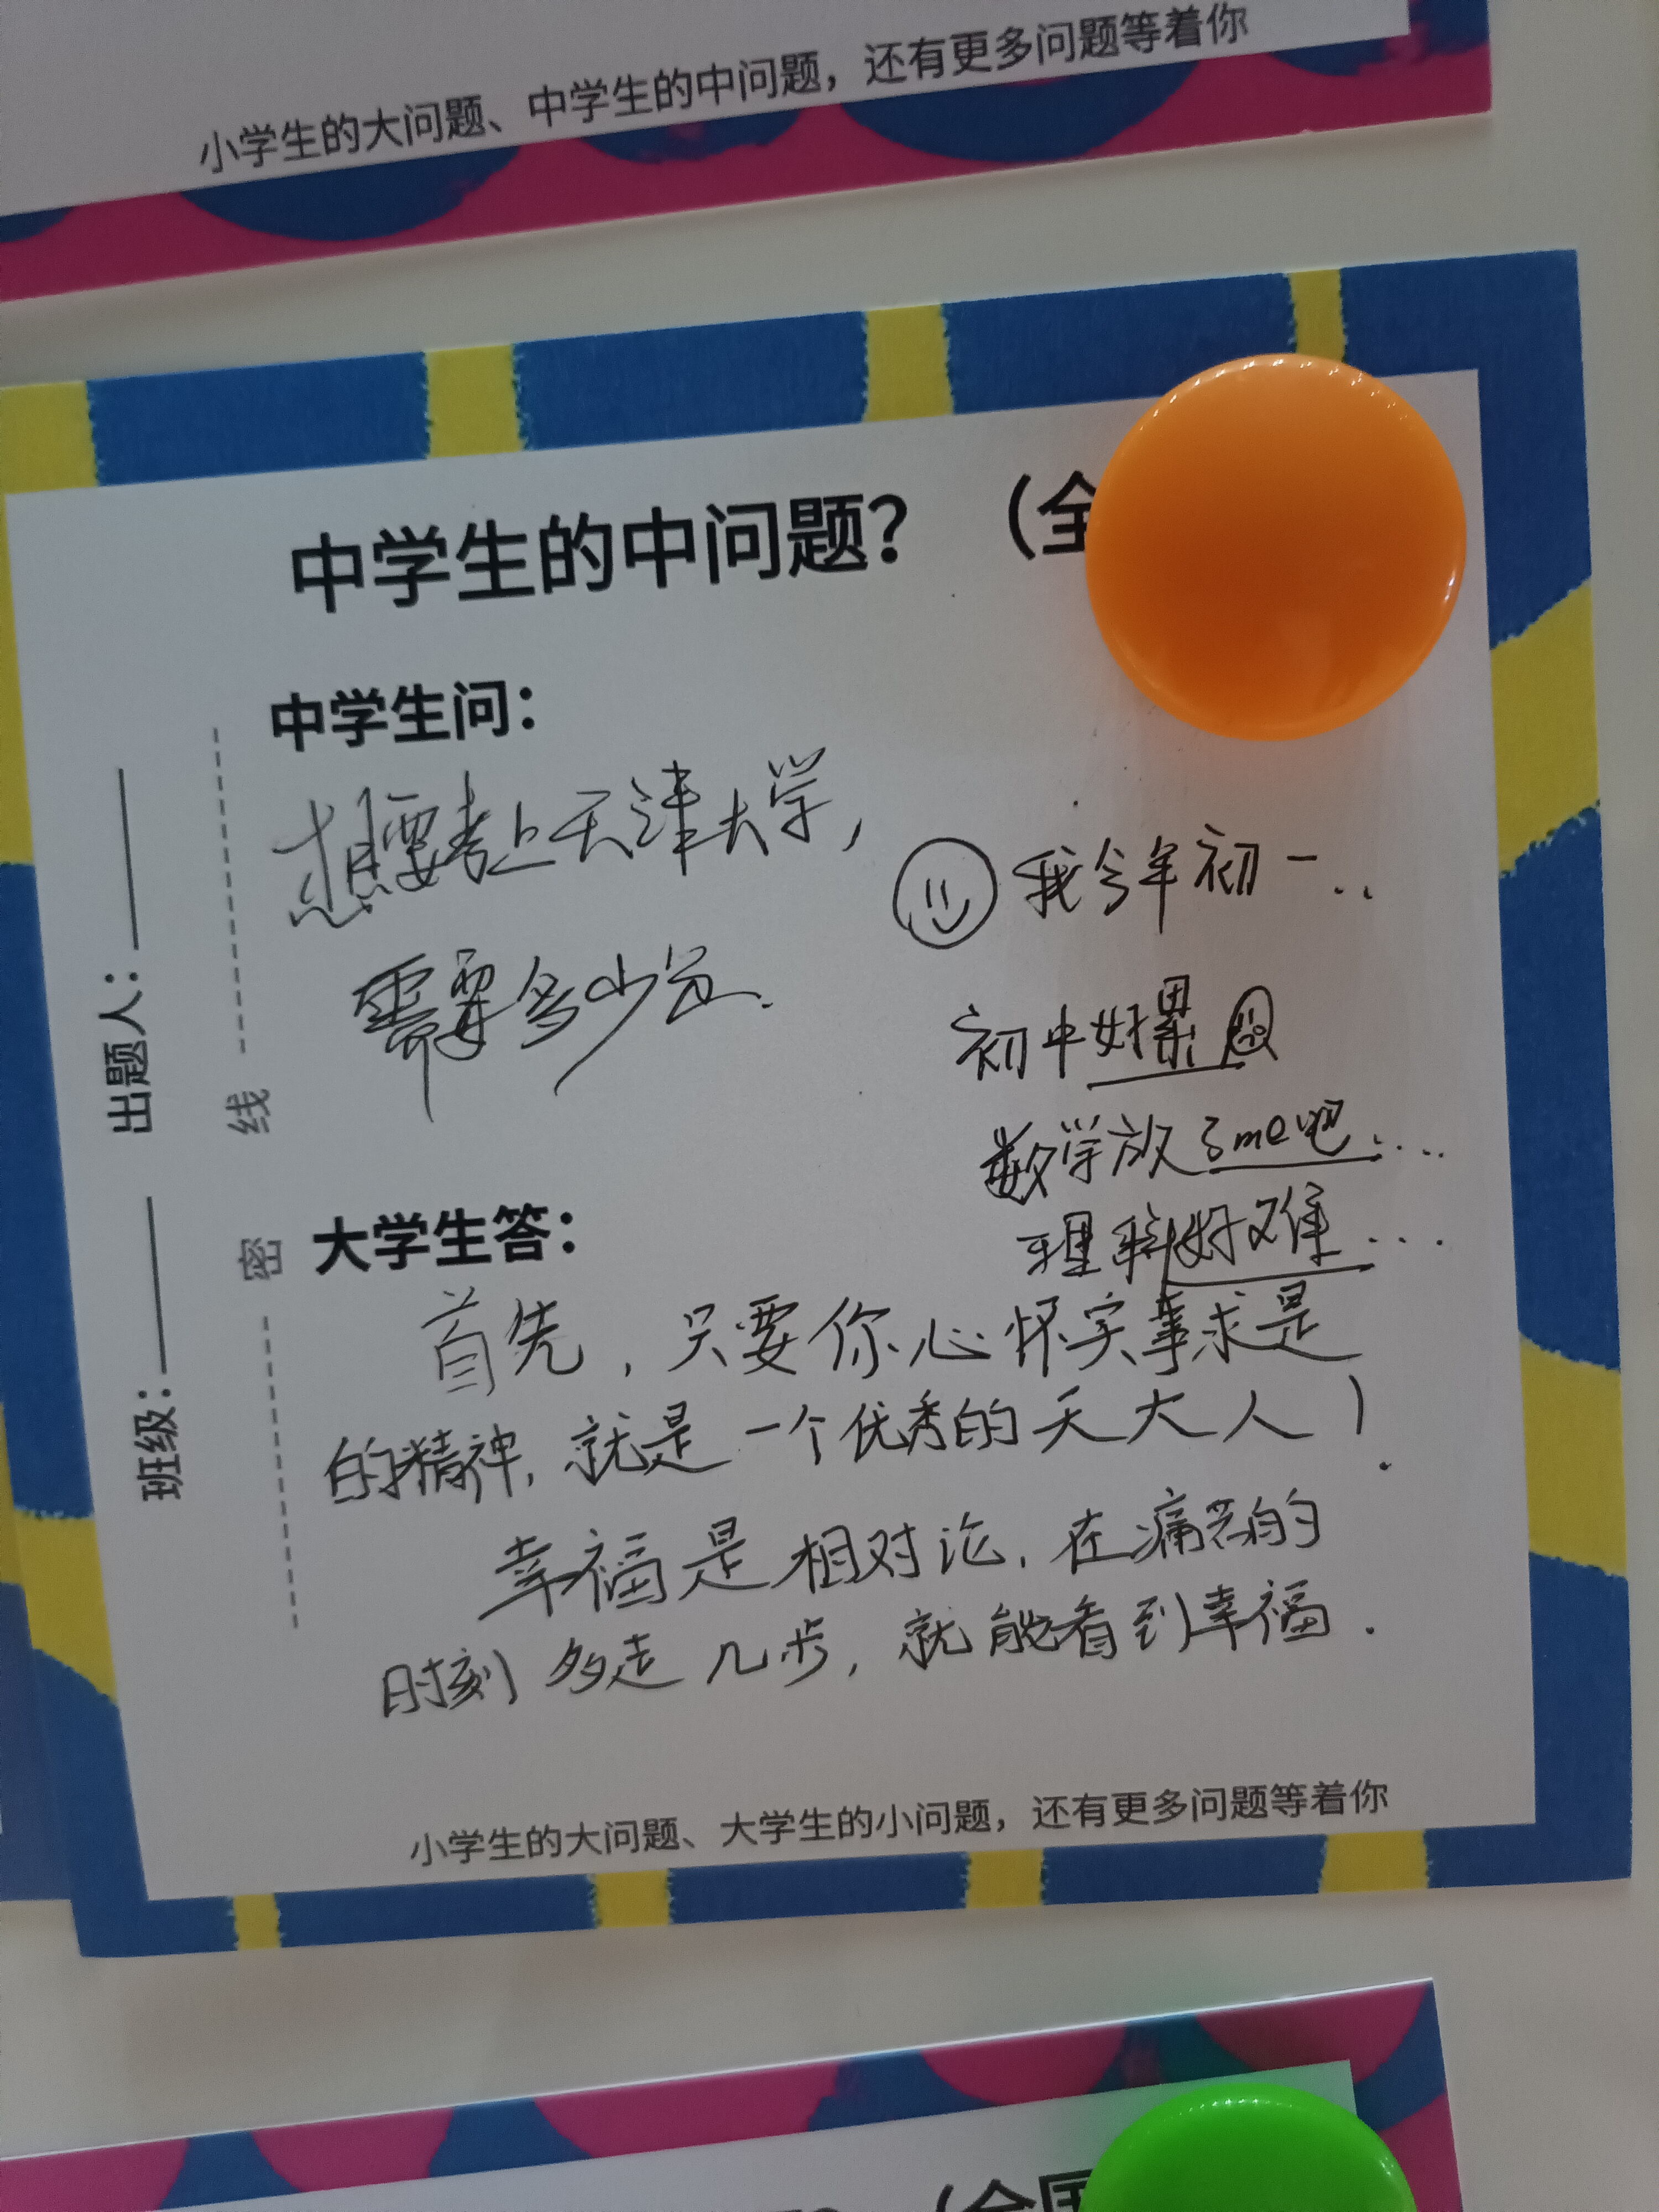 小学生的大问题、中学生的中问题，还有更多问题等着你
中学生的中问题？（全
中学生问：
想要考上天津大学，
需要多少分.
我今年初一..
初中好累
数学放了me吧...
理科好难...
大学生答：
首先，只要你心怀实事求是
的精神，就是一个优秀的天大人！
幸福是相对论，在痛苦的
时刻多走几步，就能看到幸福.
小学生的大问题、大学生的小问题，还有更多问题等着你
出题人：
班级：
线
密
（全国